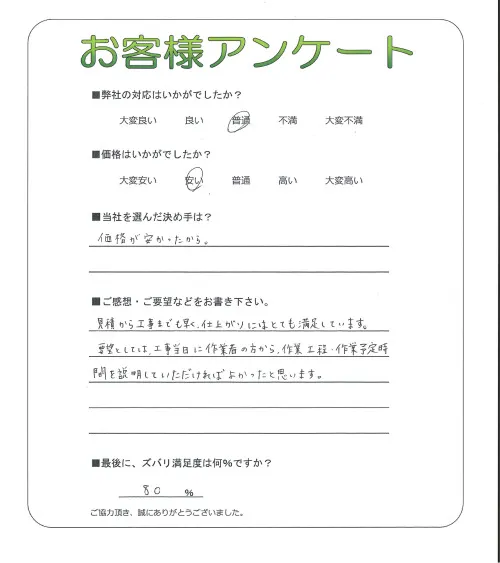 お客様アンケート
■弊社の対応はいかがでしたか？
大変良い 良い 普通 不満 大変不満
■価格はいかがでしたか？
大変安い 安い 普通 高い 大変高い
■当社を選んだ決め手は？
価格が安かったから。
■ご感想・ご要望などをお書き下さい。
見積から工事までも早く、仕上がりにはとても満足しています。
要望としては、工事当日に作業者の方から、作業工程・作業予定時
間を説明していただければよかったと思います。
■最後に、ズバリ満足度は何%ですか？
80 %
ご協力頂き、誠にありがとうございました。